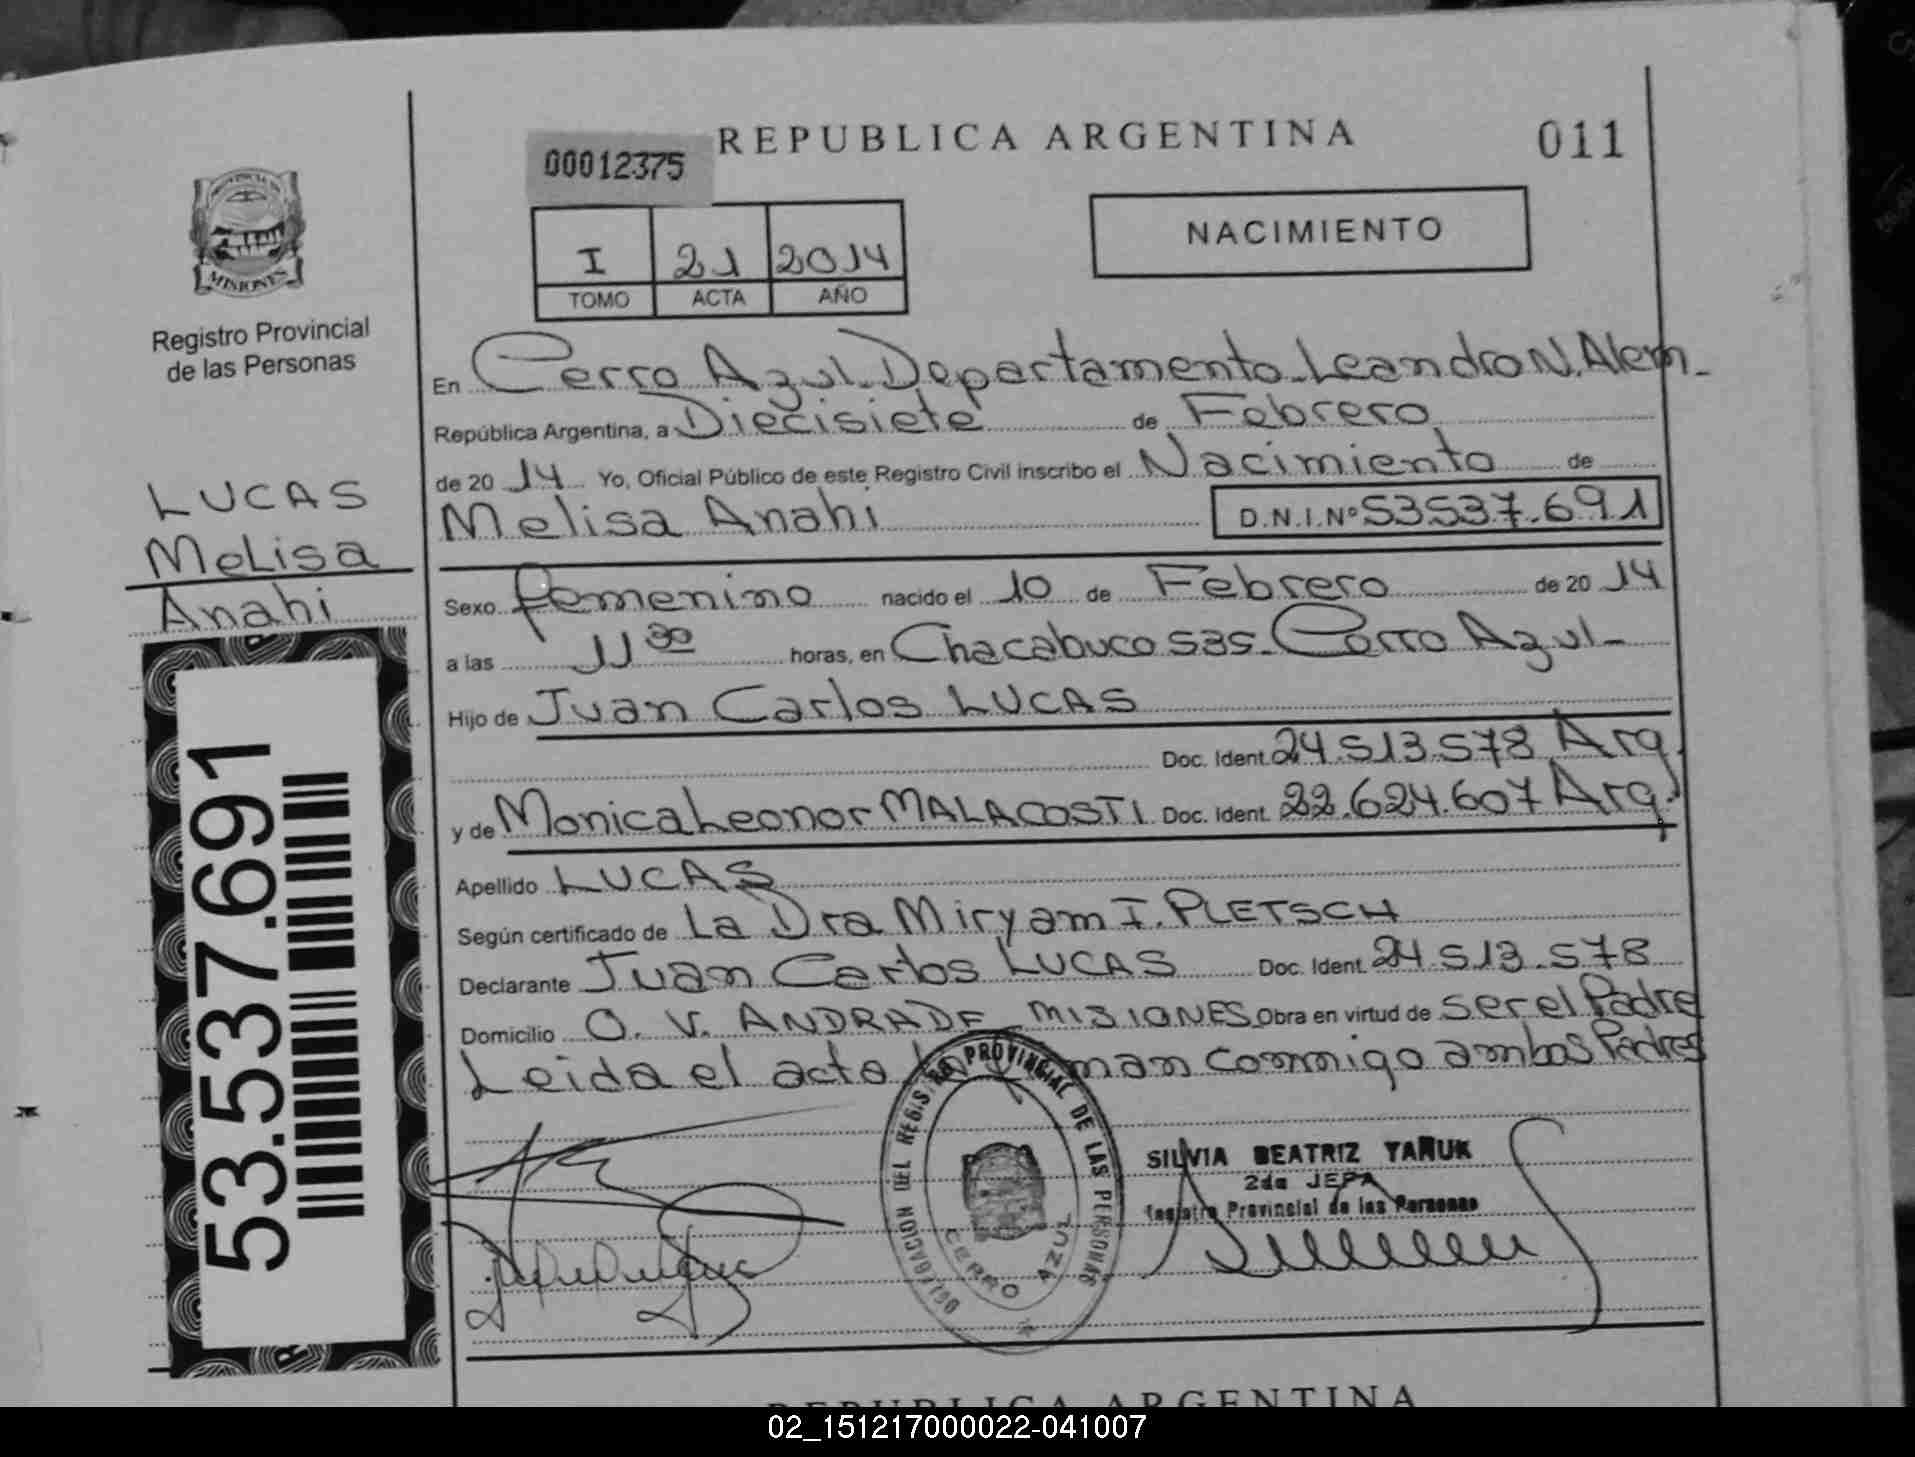 REPUBLICA ARGENTINA
011
00012375
NACIMIENTO
I 21 2014
TOMO ACTA AÑO
MISIONES
Registro Provincial
de las Personas
LUCAS
Melisa
Anahi
53.537.691
En Cerro Azul Departamento Leandro N. Alem
República Argentina, a Diecisiete de Febrero
de 20 14 Yo, Oficial Público de este Registro Civil inscribo el Nacimiento de
Melisa Anahi D.N.I.Nº 53537.691
Sexo femenino nacido el 10 de Febrero de 20 14
a las 11 30 horas, en Chacabuco 535 - Cerro Azul -
Hijo de Juan Carlos LUCAS
Doc. Ident. 24.513.578 Arg.
y de Monica Leonor MALACOSTI Doc. Ident. 22.624.607 Arg.
Apellido LUCAS
Según certificado de La Dra Miryam I. PLETSCH
Declarante Juan Carlos LUCAS Doc. Ident. 24.513.578
Domicilio O. V. ANDRADE - MISIONES Obra en virtud de ser el Padre
Leida el acta la man conmigo ambos Padres
DELEGACION DEL REGISTRO PROVINCIAL DE LAS PERSONAS
CERRO AZUL
SILVIA BEATRIZ YAÑUK
2da JEFA
Registro Provincial de las Personas
REPUBLICA ARGENTINA
02_151217000022-041007